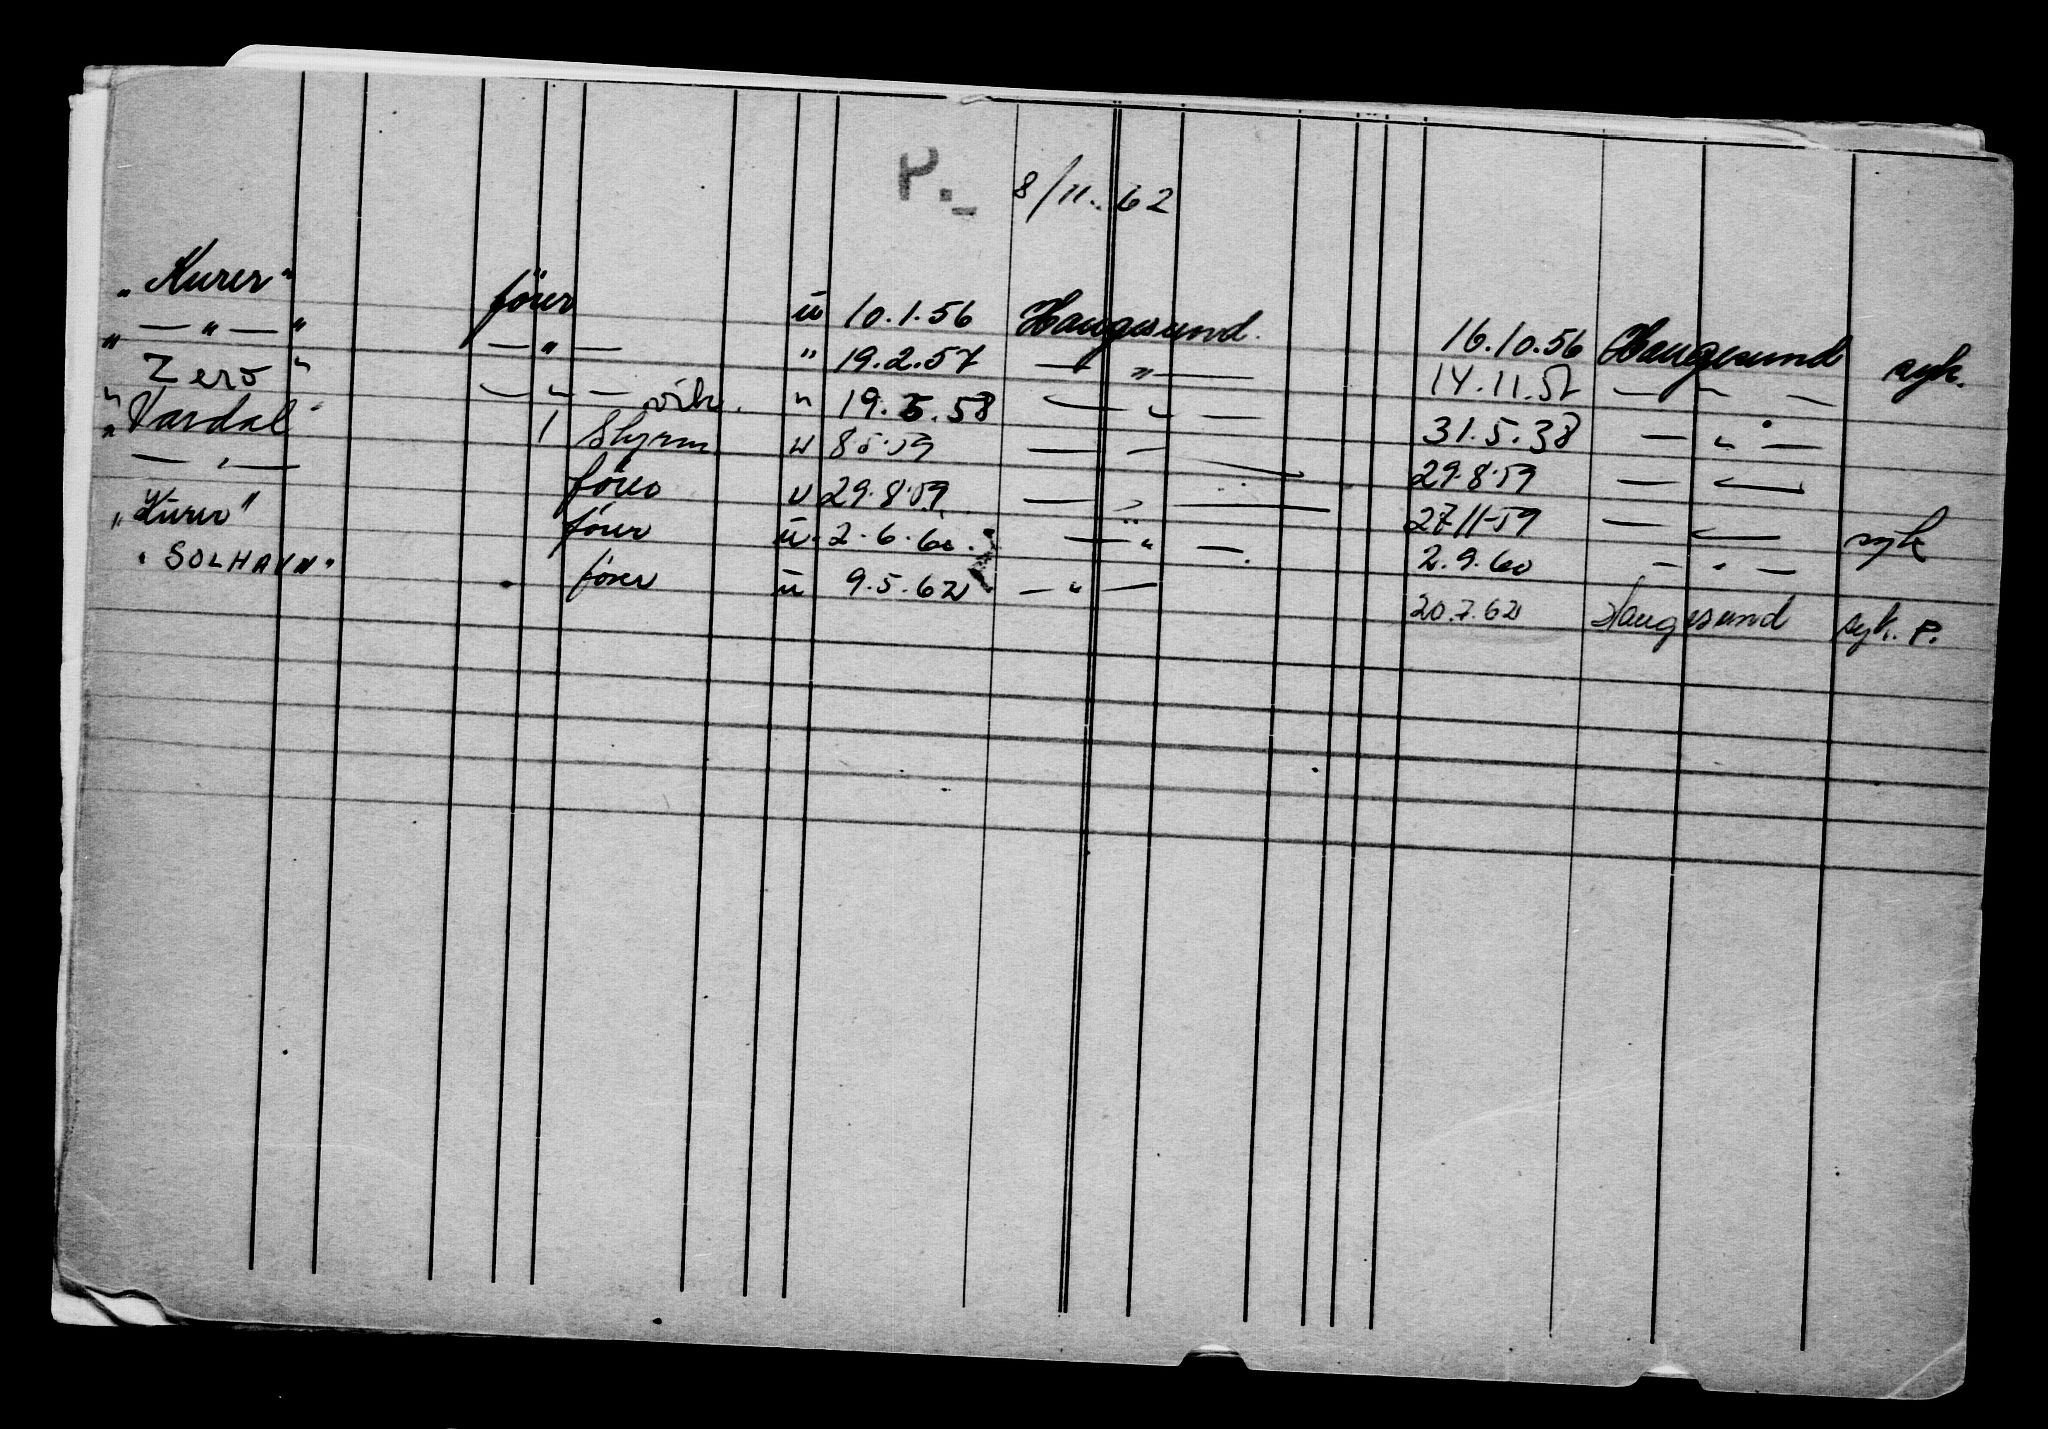 P. - 8/11. 62
"Kurer" fører u 10.1.56 Haugesund. 16.10.56 Haugesund syk.
" — " — " — " — " 19.2.57 — " — 14.11.57 — " —
" Zero " — " — vik. " 19.5.58 — " — 31.5.38 — " —
"Vardal" 1 Styrm u 8.5.59 — " — 29.8.59 — " —
— " — fører u 29.8.59 — " — 27.11.59 — " — syk
"Kurer" fører u. 2.6.60. — " — 2.9.60 — " —
"SOLHAVN" fører u 9.5.62 — " — 20.7.62 Haugesund syk. P.